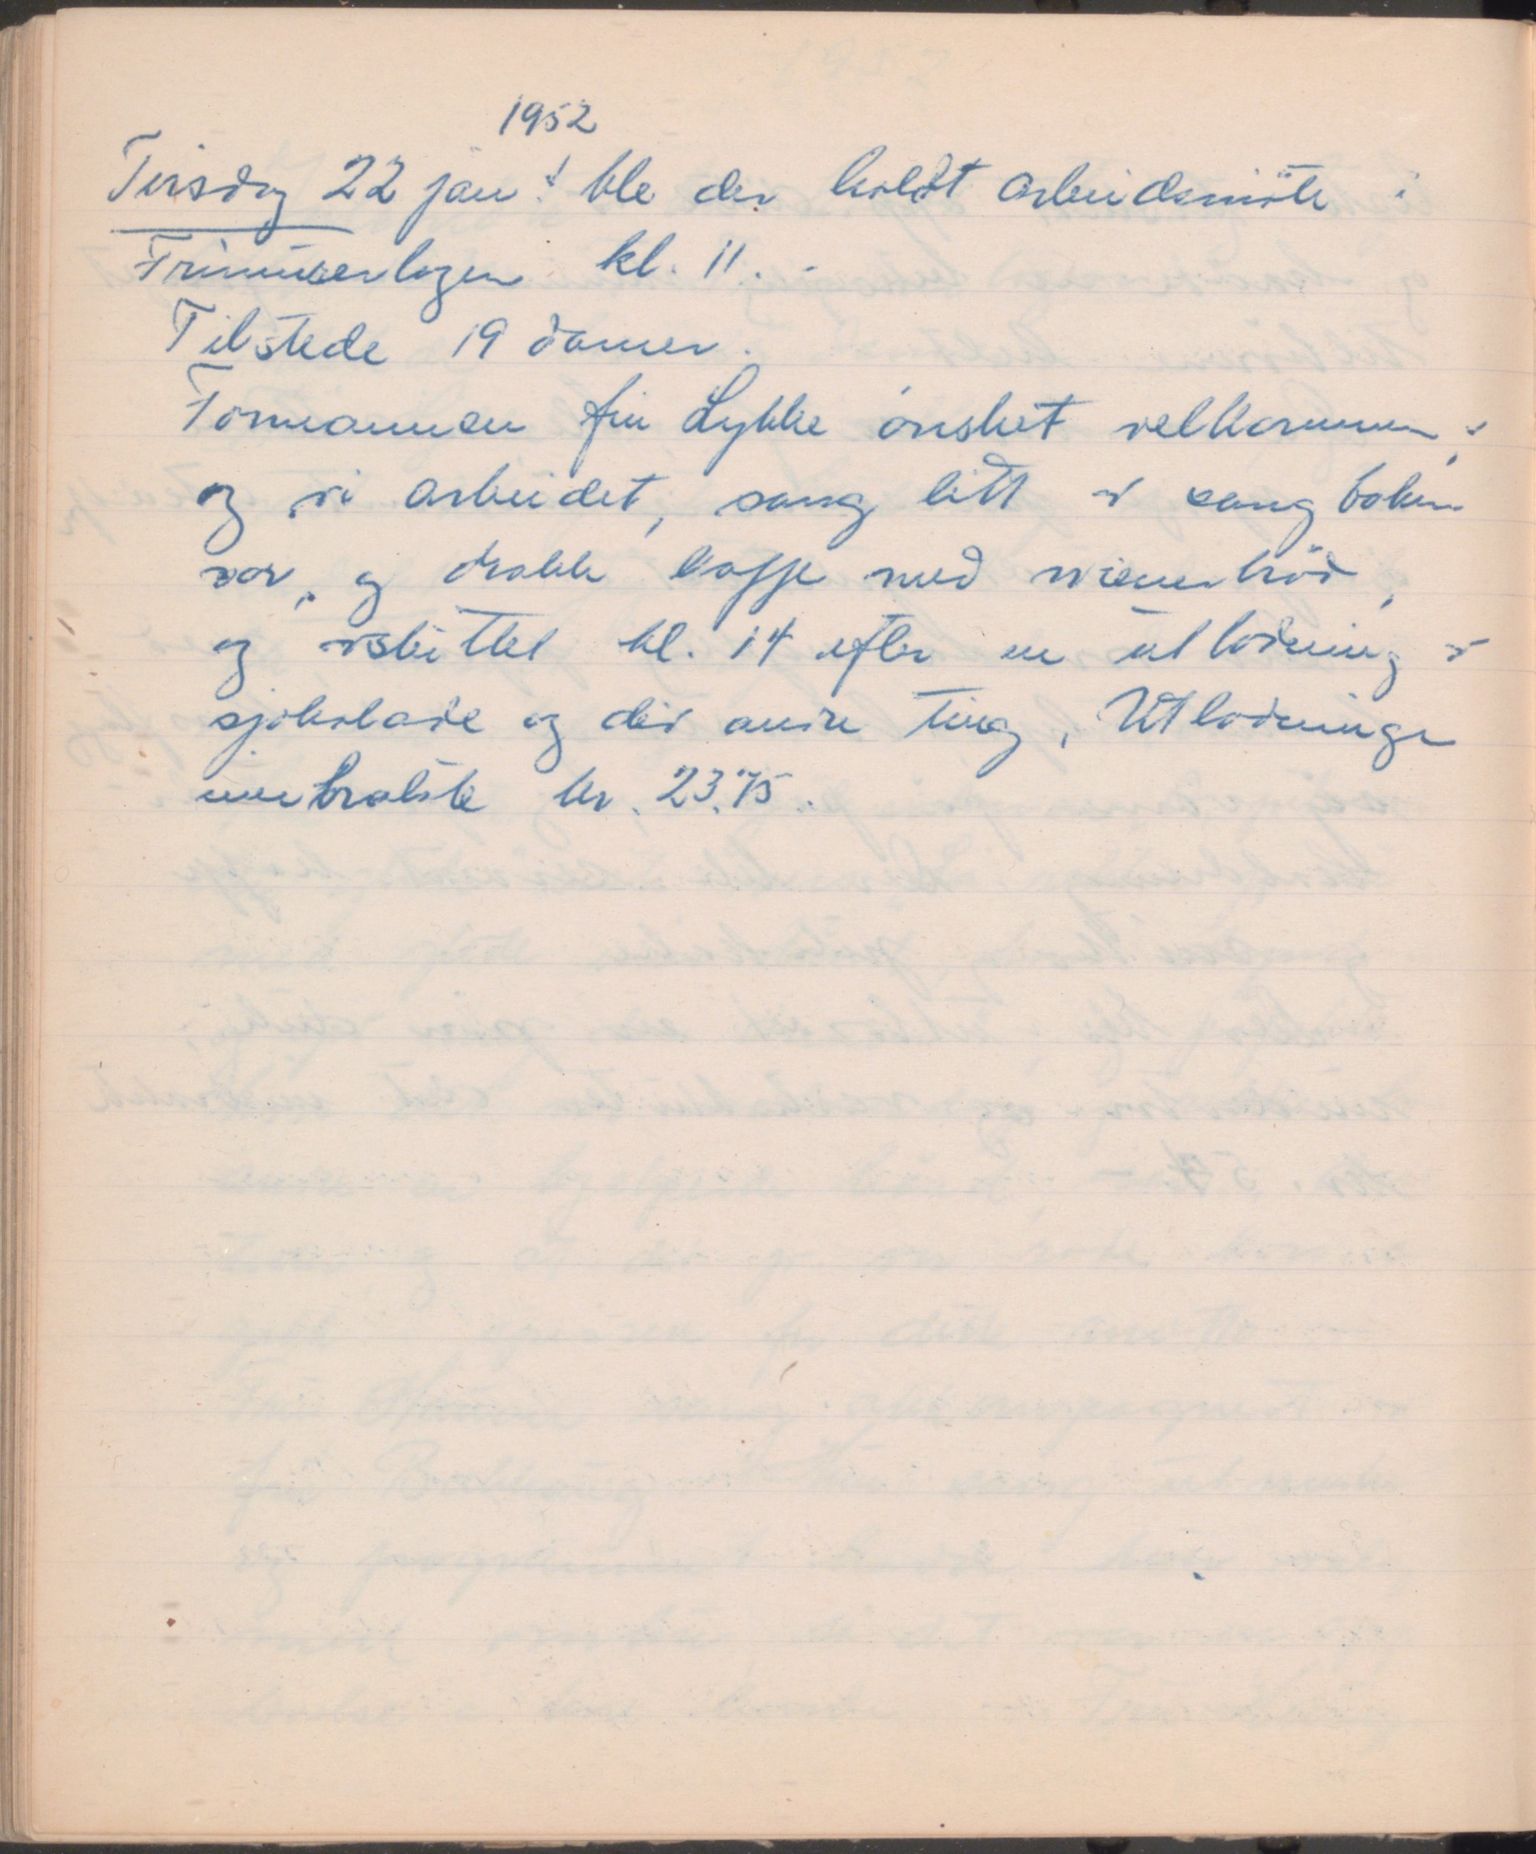 1952
Tirsdag 22 jan. ble der holdt arbeidsmöte i
Frimurerlogen kl. 11.
Tilstede 19 damer.
Formannen fru Lykke ønsket velkommen,
og vi arbeidet, sang litt av sangboken
vor, og drakk kaffe med wienerbröd,
og vsluttet kl. 14 efter en utlodning av
sjokolade og div andre ting. Utlodningen
innbrakte kr. 23.75.